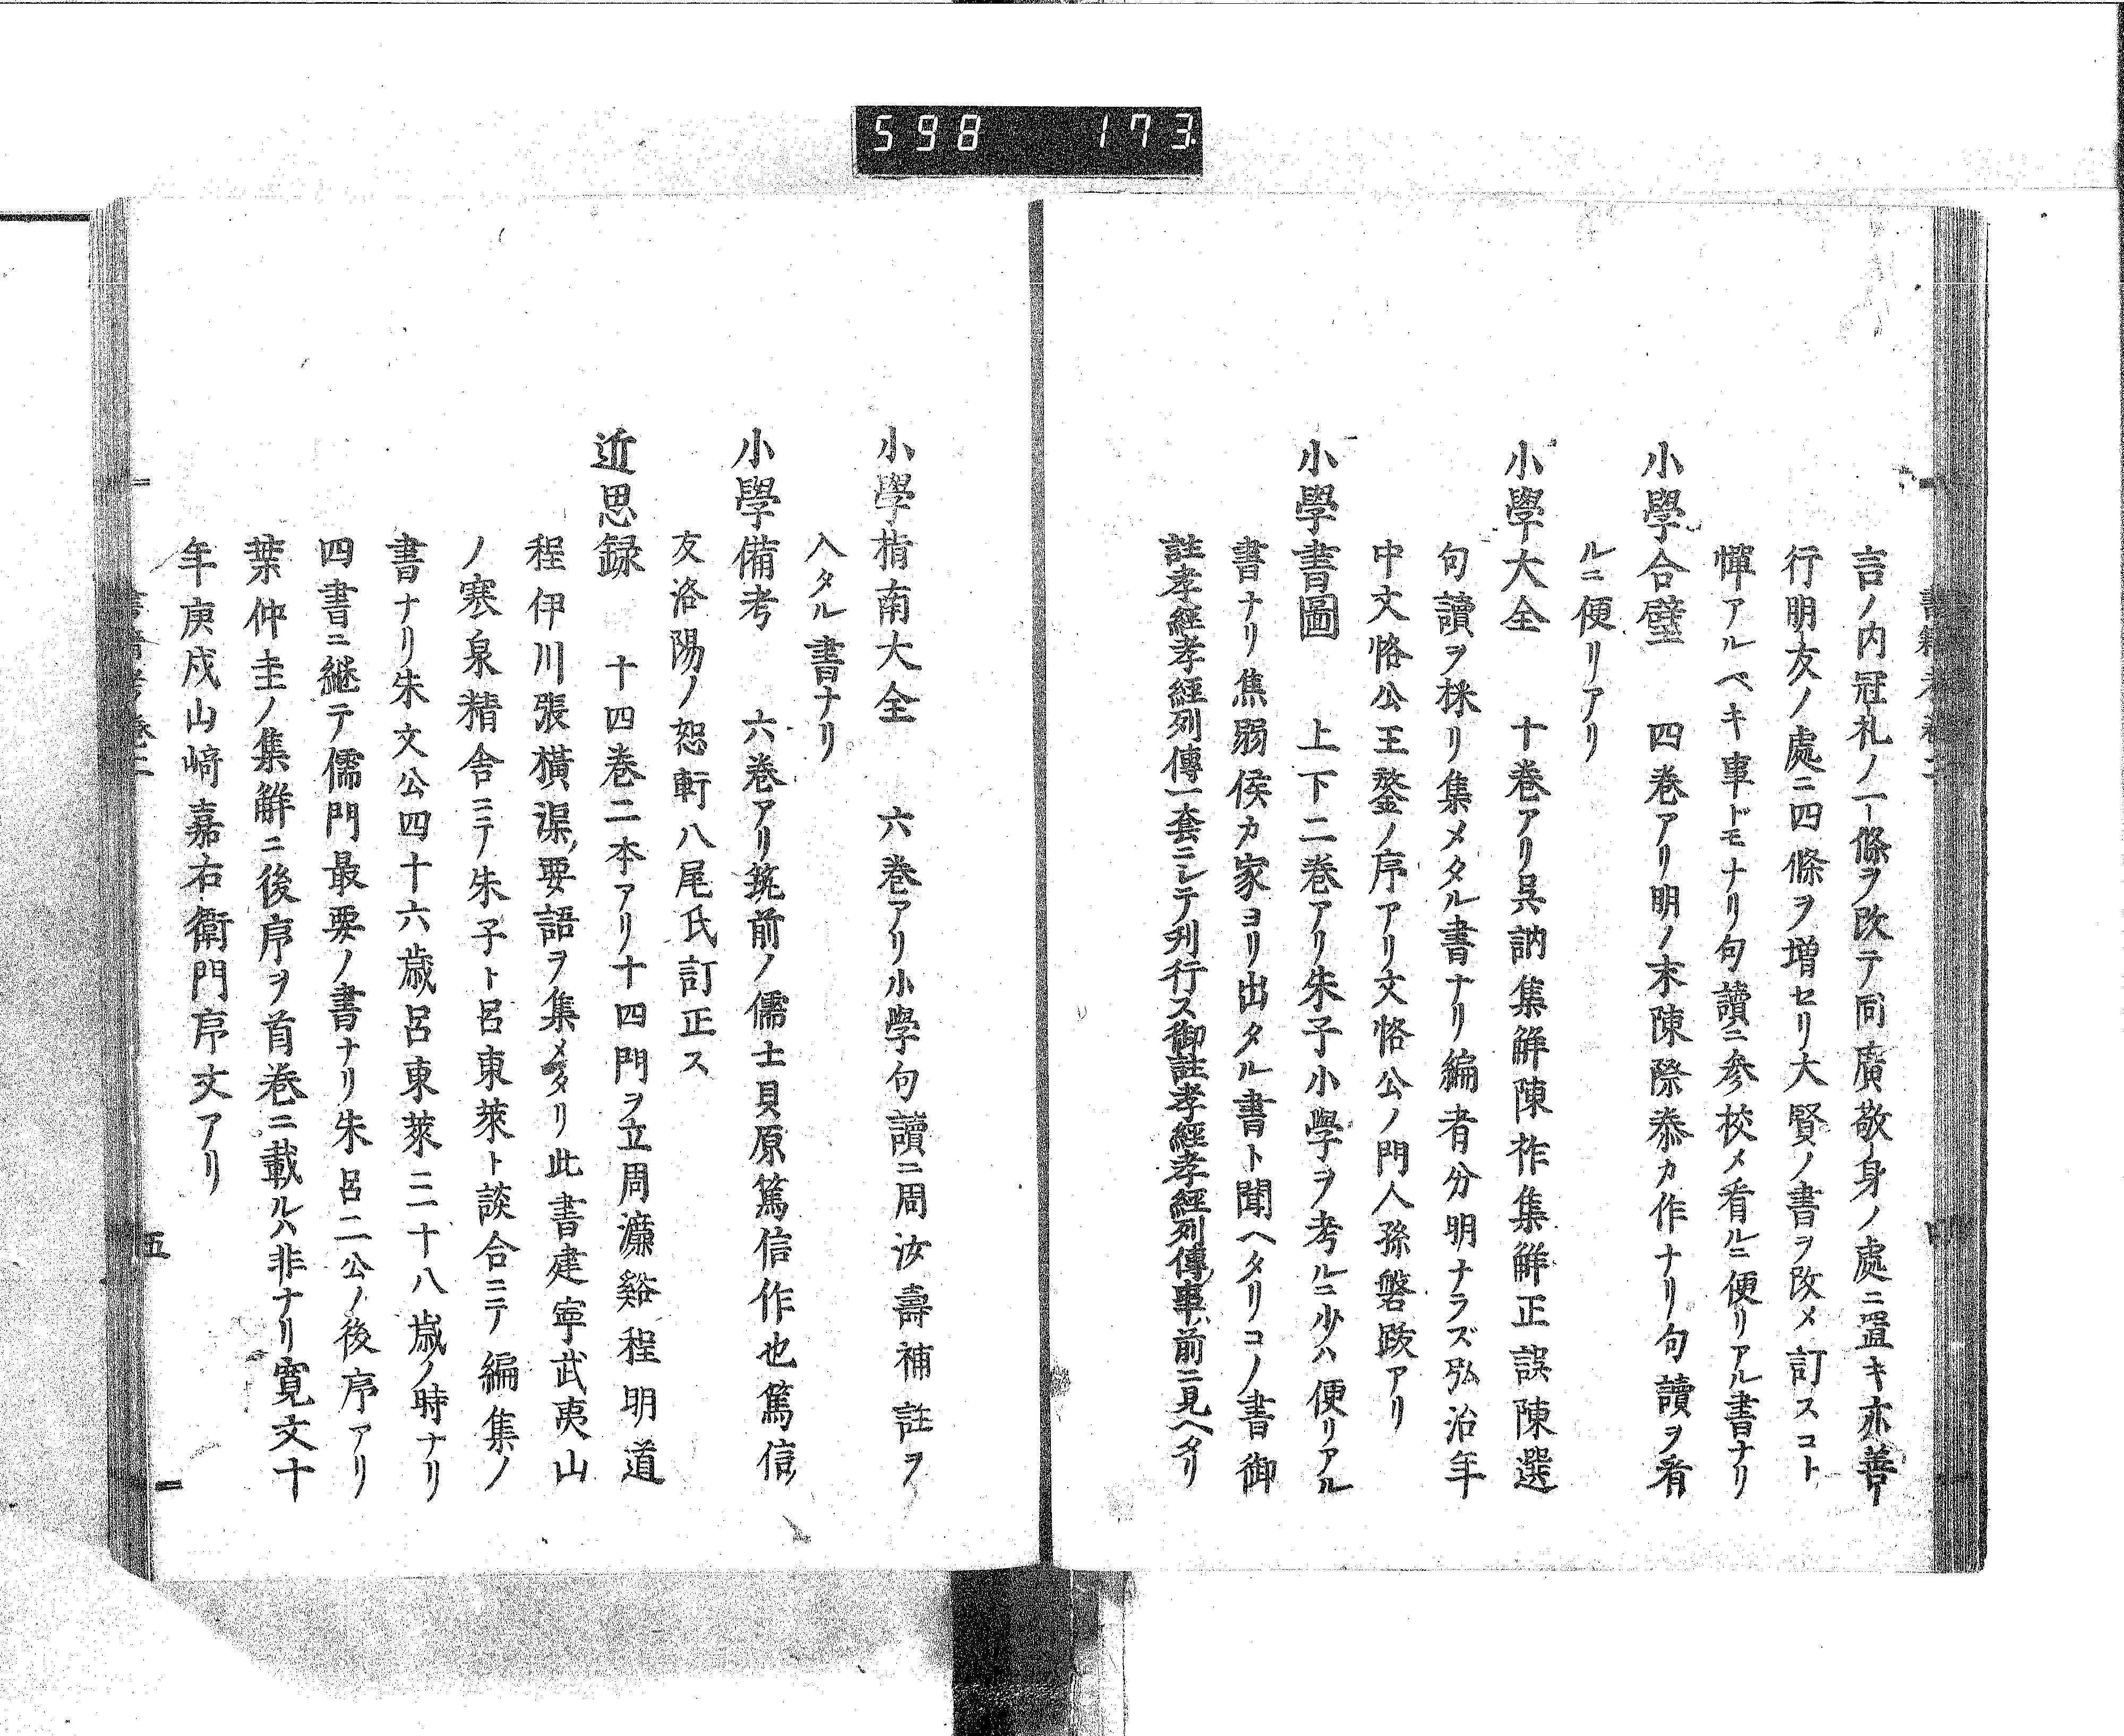 598 173
言ノ内冠礼ノ一條ヲ改テ同廣敬身ノ處ニ置キ亦善
行明友ノ處ニ四條ヲ増セリ大賢ノ書ヲ改メ訂スコト
憚アルベキ事ドモナリ句讀ニ参校メ看ルニ便リアル書ナリ
小學合璧 四巻アリ明ノ末陳際泰カ作ナリ句讀ヲ看
ルニ便リアリ
小學大全 十巻アリ呉訥集解陳祚集解正誤陳選
句讀ヲ採リ集メタル書ナリ編者分明ナラズ弘治年
中文恪公王鏊ノ序アリ文恪公ノ門人孫磐跋アリ
小學書圖 上下二巻アリ朱子小學ヲ考ルニ少ハ便リアル
書ナリ焦弱侯カ家ヨリ出タル書ト聞ヘタリコノ書御
註孝經孝經列傳一套ニシテ刋行ス御註孝經孝經列傳事前ニ見ヘタリ
小學指南大全 六巻アリ小學句讀ニ周汝壽補註ヲ
入タル書ナリ
小學備考 六巻アリ筑前ノ儒士貝原篤信作也篤信
友洛陽ノ恕軒八尾氏訂正ス
近思録 十四巻二本アリ十四門ヲ立周濂谿程明道
程伊川張横渠要語ヲ集メタリ此書建寧武夷山
ノ寒泉精舎ニテ朱子ト呂東萊ト談合ニテ編集ノ
書ナリ朱文公四十六歳呂東萊三十八歳ノ時ナリ
四書ニ継テ儒門最要ノ書ナリ朱呂二公ノ後序アリ
葉仲圭ノ集解ニ後序ヲ首巻ニ載ルハ非ナリ寛文十
年庚戌山﨑嘉右衛門序文アリ
書籍考巻二 五